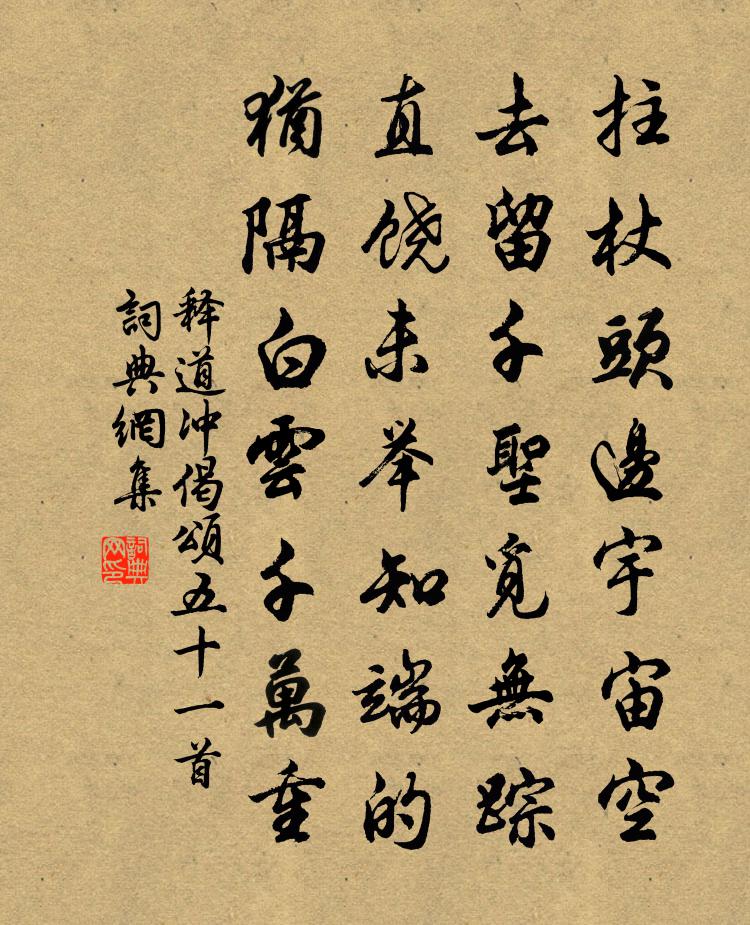 拄杖頭邊宇宙空
去留千聖覓無踪
直饶未举知端的
猶隔白雲千萬重
释道冲偈頌五十一首
詞典網集
詞典网印